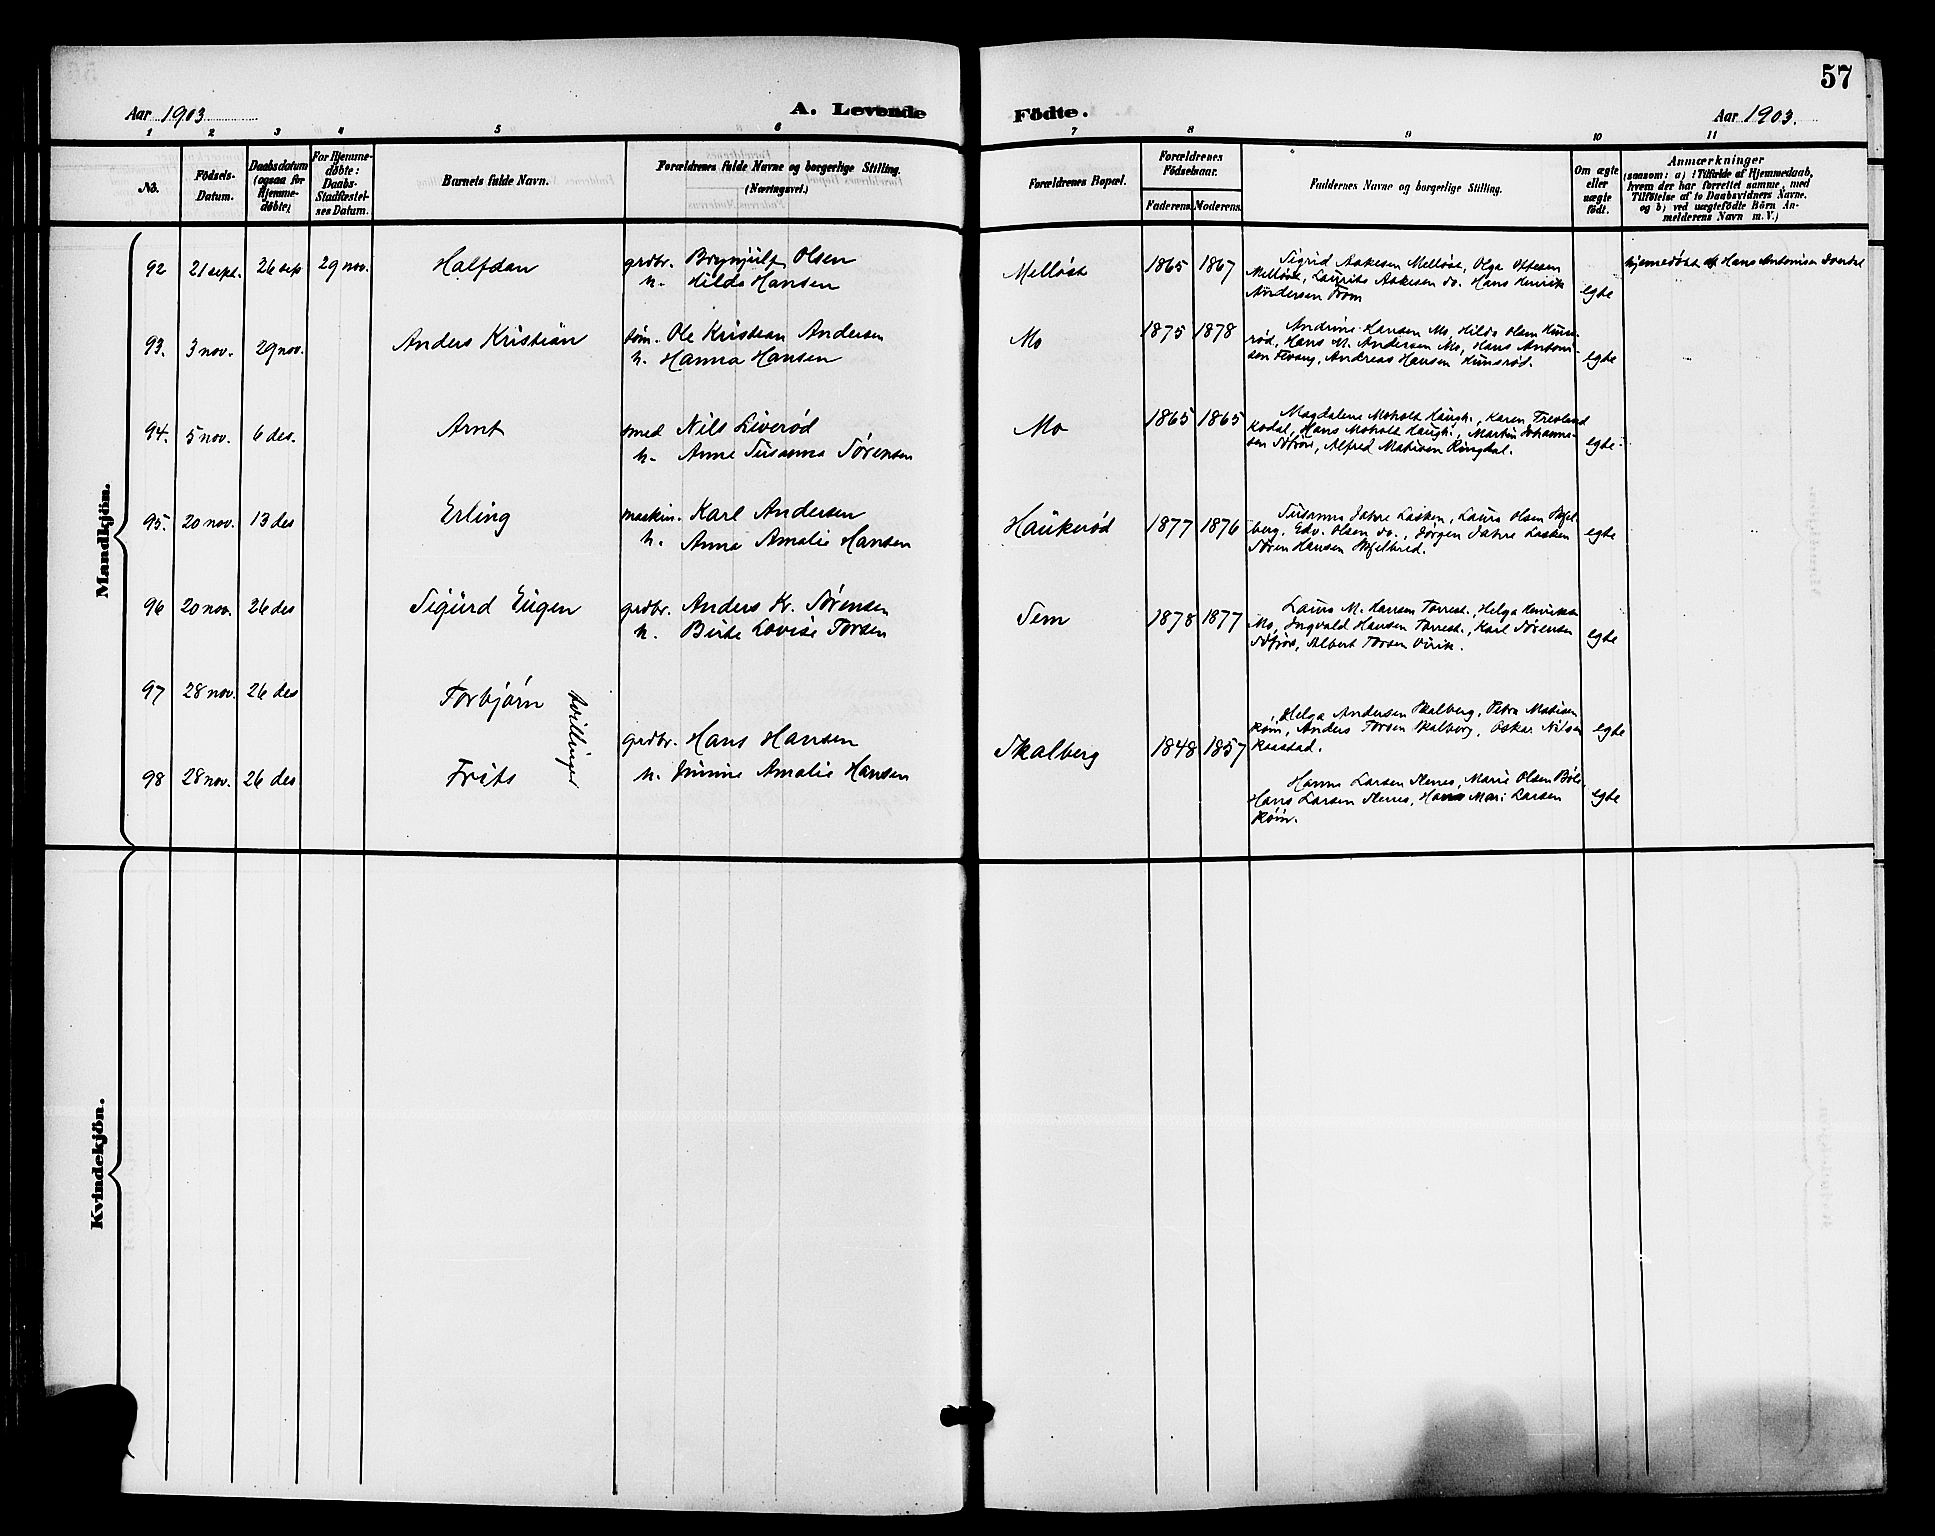 57
Aar 1903 A. Levende Födte. Aar 1903.
1 2 3 4 5 6 7 8 9 10 11
No.
Födsels-
Datum.
Daabsdatum
(ogsaa for
Hjemme-
døbte)
For Hjemme-
døbte:
Daabs-
Stadfæstel-
ses Datum.
Barnets fulde Navn.
Forældrenes fulde Navne og borgerlige Stilling.
(Næringsvei.)
Forældrenes Bopæl.
Forældrenes
Födselsaar.
Faderens. Moderens.
Faddernes Navne og borgerlige Stilling.
Om ægte
eller
uægte
födt.
Anmærkninger
(saasom: a) i Tilfælde af Hjemmedaab,
hvem der har forrettet samme, med
Tilföielse af to Daabsvidners Navne,
og b) ved uægtefödte Börn An-
melderens Navn m. V.)
Mandkjön.
92 21 sept. 26 sep 29 nov. Halfdan grdbr. Brynjulf Olsen
h. Hilda Hansen
Melløst 1865 1867
Sigrid Aakesen Melløst, Olga Ottesen
Melløst, Laurits Aakesen do. Hans Henrik
Andersen Fom
egte
hjemmedøbt af Hans Antonisen
93. 3 nov. 29 nov. Anders Kristian tøm. Ole Kristian Andersen
h. Hanna Hansen
Mo 1875 1878
Andrine Hansen Mo, Hilda Olsen Huns-
rød, Hans M. Andersen Mo, Hans Anton-
sen, Andreas Hansen Hunsrød.
egte
94. 5 nov. 6 des. Arnt smed Nils Liverød
h. Anne Susanna Sørensen
Mo 1865 1865
Magdalene Moholt Haugh., Karen Trevland
Kodal, Hans Moholt Haugh., Martin Johanne-
sen, Alfred Matisen Ringdal.
egte
95. 20 nov. 13 des Erling maskin. Karl Andersen
h. Anna Amalie Hansen
Haukerød 1877 1876
Susanna Jahre Lasken, Laura Olsen Skjel-
berg, Edv. Olsen do., Jørgen Jahre Lasken
Søren Hansen Skjelbred.
egte
96 20 nov. 26 des Sigurd Eugen grdbr. Anders Kr. Sørensen
h. Berte Lovise Torsen
Sem 1878 1877
Laura M. Hansen Torrest., Helga Henriksen
Mo, Ingvald Hansen Torrest., Karl Sørensen
Albert Torsen Virik.
egte
97 28 nov. 26 des Torbjørn
tvillinger
grdbr. Hans Hansen
h. Amalie Hansen
Skalberg 1848 1857
Helga Andersen Skalberg, Petra Matisen
Røm, Anders Torsen Skalberg, Oskar Nilsen
Raastad.
egte
98 28 nov. 26 des Frits
Hanna Larsen, Marie Olsen Bøle,
Hans Larsen, Hans Mari Larsen
Røm.
egte
Kvindekjön.